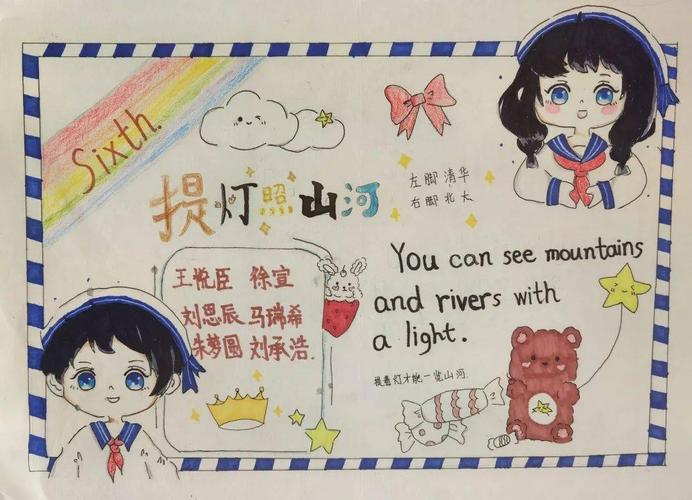 Sixth.
提灯照山河
左脚清华
右脚北大
王悦臣 徐宣
刘思辰 马瑞希
朱梦圆 刘承浩.
You can see mountains
and rivers with
a light.
提着灯才能一览山河.